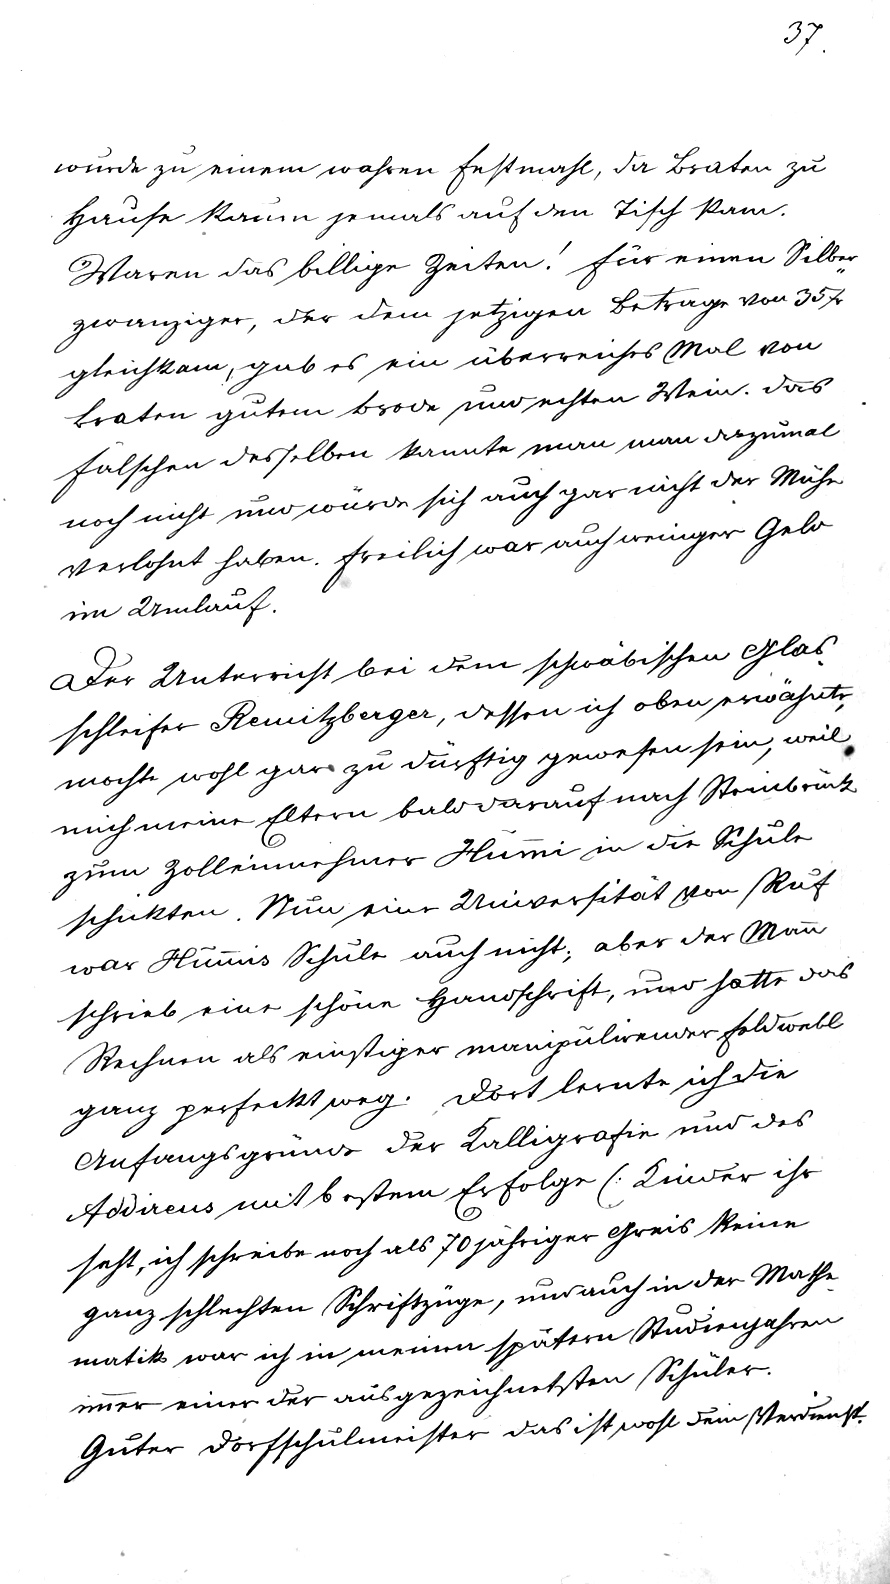 37.
wurde zu einem wahren Festmahl, da Braten zu
Hause kaum jemals auf den Tisch kam.
Waren das billige Zeiten! Für einen Silber-
zwanziger, der dem jetzigen Betrage von 35 kr
gleichkam, gab es ein überreiches Mal von
Braten gutem Brode und echten Wein. Das
Fälschen desselben kannte man man dazumal
noch nicht und würde sich auch gar nicht der Mühe
verlohnt haben. Freilich war auch weniger Geld
im Umlauf.
Der Unterricht bei dem schwäbischen Glas-
schleifer Remitzberger, dessen ich oben erwähnte,
mochte wohl gar zu dürftig gewesen sein, weil
mich meine Eltern bald darauf nach Steinbrück
zum Zolleinnehmer Hum̅i in die Schule
schickten. Nun eine Universität von Ruf
war Hum̅is Schule auch nicht; aber der Man̅
schrieb eine schöne Handschrift, und hatte das
Rechnen als einstiger manipulirender Feldwebl
ganz perfeckt weg. Dort lernte ich die
Anfangsgründe der Kalligrafie und des
Addirens mit bestem Erfolge (: Kinder ihr
seht, ich schreibe noch als 70 jähriger Greis keine
ganz schlechten Schriftzüge, und auch in der Mathe-
matik war ich in meinen spätern Studienjahren
im̅er einer der ausgezeichnetsten Schüler.
Guter Dorfschulmeister das ist wohl dein Verdienst.